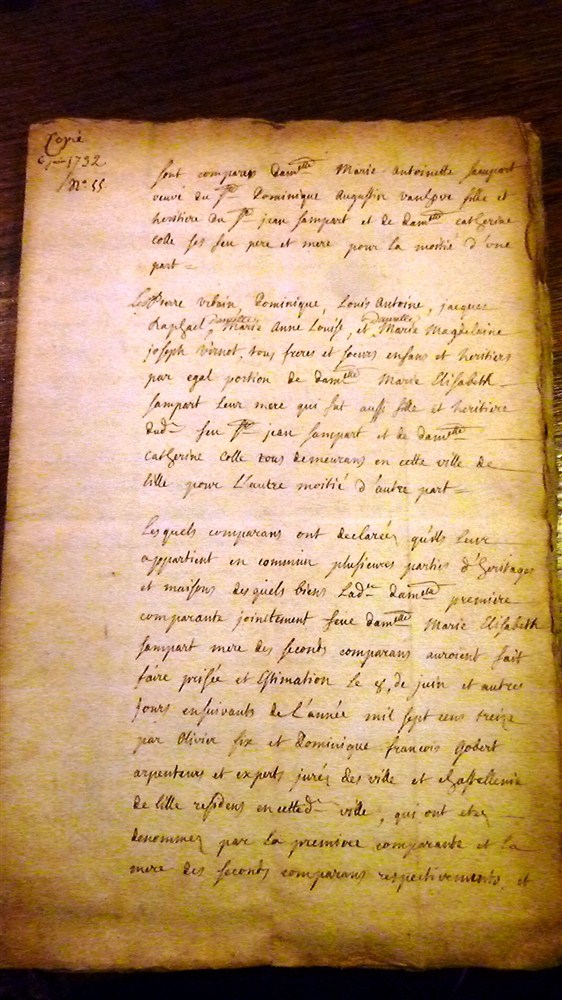 Copié
1732
N° 55
sont comparez dam^elle Marie Antoinette Sampart
veuve du S^r Dominique Augustin vanhove fille et
heritiere du S^r jean Sampart et de dam^elle catherine
Colle ses feu pere et mere pour la moitié d'une
part =
Pierre urbain, Dominique, Louis Antoine, jacques
Raphael, damelle Marie Anne Louise, et damelle Marie Magdelaine
joseph tous freres et soeurs enfans et heritiers
par egal portion de dam^elle Marie Elisabeth
Sampart leur mere qui fut aussi fille et heritiere
dud^t feu S^r jean Sampart et de dam^elle
catherine Colle tous demeurans en cette ville de
lille pour L'autre moitié d'autre part =
Lesquels comparans ont declarez qu'ils leur
appartient en commun plusieures parties d'heritages
et maisons desquels biens Lad^te dam^elle premiere
comparante jointement feue dam^elle Marie Elisabeth
Sampart mere des seconds comparans auroient fait
faire prisée et Estimation Le 8, de juin et autres
jours ensuivants de L'année mil sept cens treize
par Olivier fix et Dominique francois Gobert
arpenteurs et experts jurez des ville et chastellenie
de lille residens en cetted^te ville, qui ont etez
denommez par La premiere comparante et La
mere des seconds comparans respectivements, et